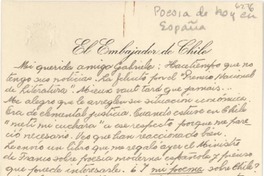 6576
Poesia de hoy en
España
El Embajador de Chile
Mi querida amiga Gabriela: Hace tiempo que no
tengo sus noticias. La felicito por el Premio Nacional
de Literatura. "Mieux vaut tard que jamais..."
Me alegro que le arreglen su situación económica.
Era de elemental justicia. Cuando estuve en Chile
"metí mi cuchara" a ese respecto porque me pa-
reció necesario. Veo que han reaccionado bien.
Le envío un libro que me regaló ayer el Ministro
de Franco sobre poesía moderna española y pienso
que puede interesarle. 6 7 mi poema sobre Chile?